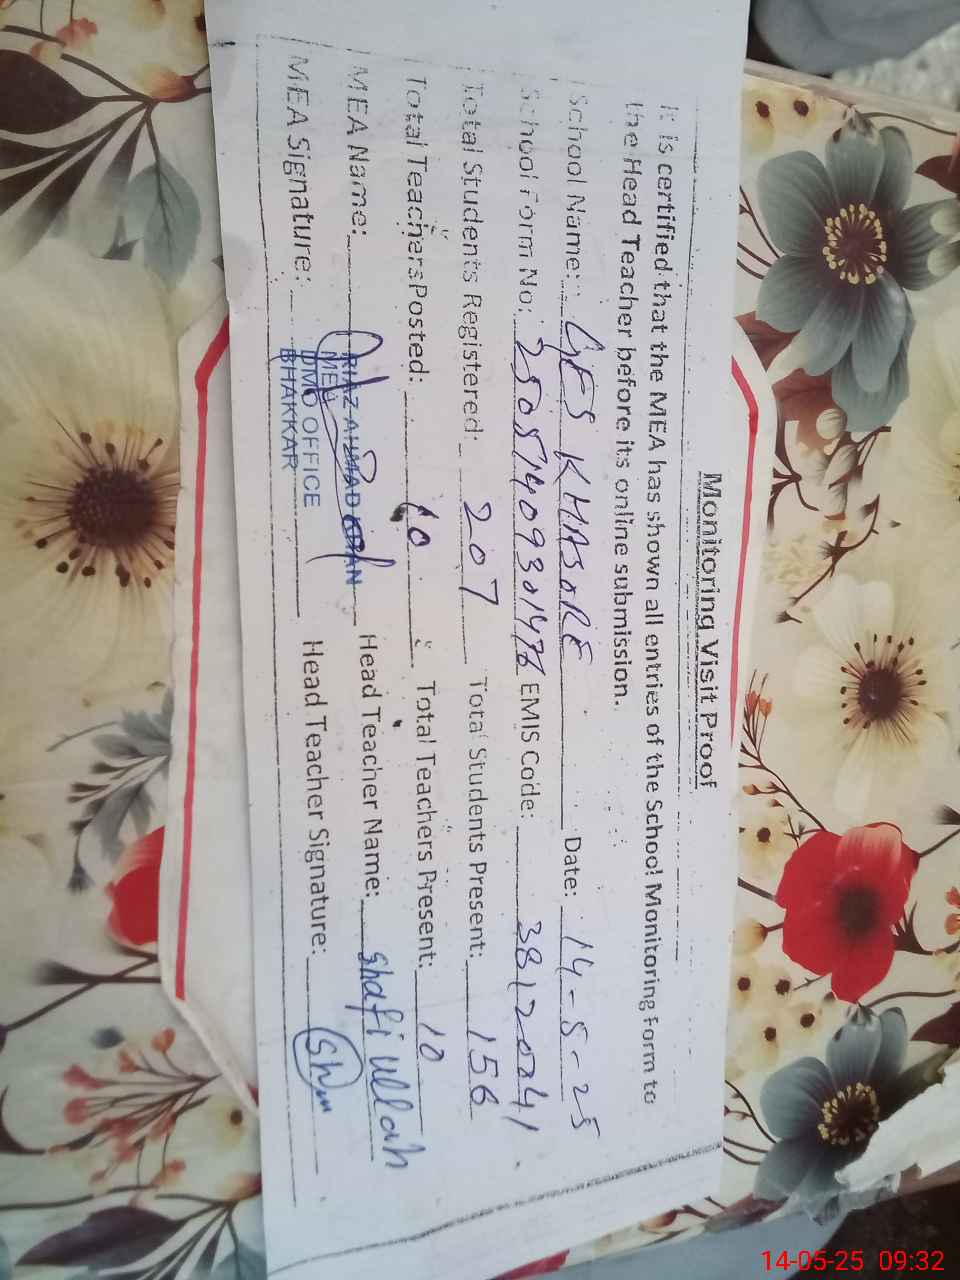 Monitoring Visit Proof
It is certified that the MEA has shown all entries of the School Monitoring Form to
the Head Teacher before its online submission.
School Name: GES KHASORE Date: 14-5-25
School Form No: 25051409301476 EMIS Code: 38120041
Total Students Registered: 207 Total Students Present: 156
Total Teachers Posted: 10 Total Teachers Present: 10
MEA Name: RIAZ AHMAD KHAN Head Teacher Name: Shafi Ullah
MEA
MEA Signature: DMO OFFICE Head Teacher Signature:
BHAKKAR
14-05-25 09:32